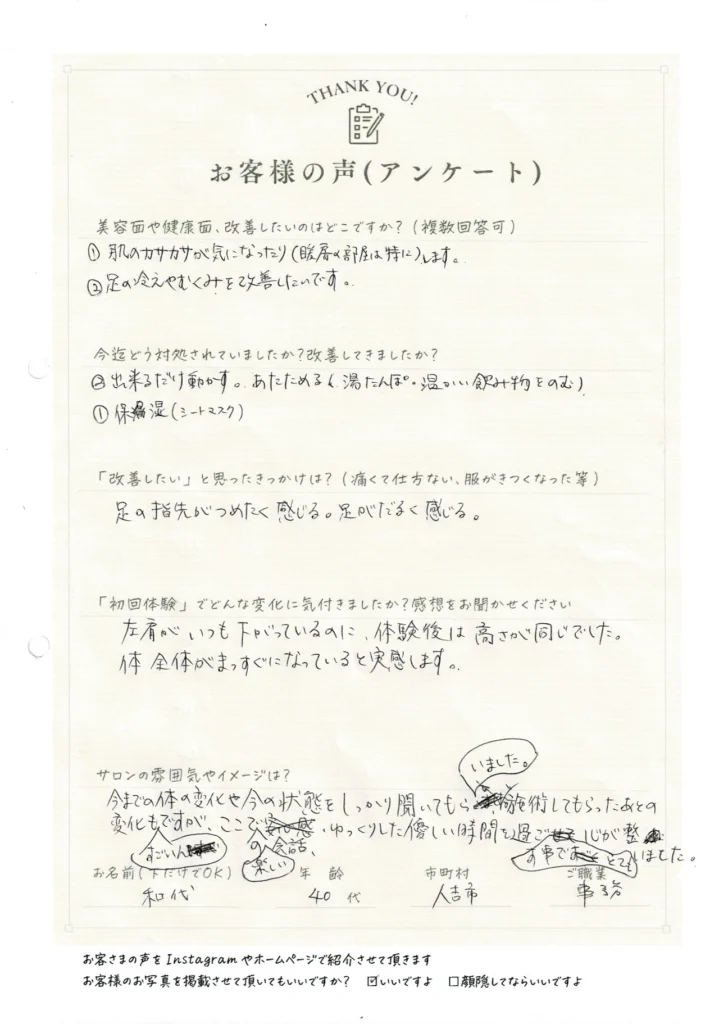 THANK YOU!
お客様の声(アンケート)
美容面や健康面、改善したいのはどこですか?(複数回答可)
① 肌のカサカサが気になったり(暖房の部屋は特に)します。
②足の冷えやむくみを改善したいです。
今迄どう対処されていましたか?改善してきましたか?
② 出来るだけ動かす。あたためる(湯たんぽ・温かい飲み物をのむ)
① 保湿(シートマスク)
「改善したい」と思ったきっかけは?(痛くて仕方ない、服がきつくなった等)
足の指先がつめたく感じる。足がだるく感じる。
「初回体験」でどんな変化に気付きましたか?感想をお聞かせください
左肩がいつも下がっているのに、体験後は高さが同じでした。
体全体がまっすぐになっていると実感します。
サロンの雰囲気やイメージは?
いました。
今までの体の変化や今の状態をしっかり聞いてもら 施術してもらったあとの
変化もですが、ここで ゆっくりした優しい時間を過ごせ 心が整
すごいん の会話、
楽しい
す事で とても いました。
お名前(下だけでOK) 年齢 市町村 ご職業
和代 40代 人吉市 事務
お客さまの声をInstagramやホームページで紹介させて頂きます
お客様のお写真を掲載させて頂いてもいいですか? ☑いいですよ □顔隠してならいいですよ